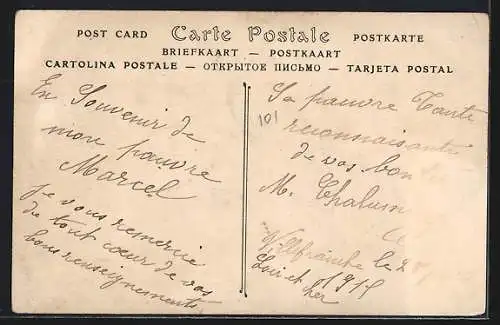 POST CARD Carte Postale POSTKARTE
BRIEFKAART — POSTKAART
CARTOLINA POSTALE — ОТКРЫТОЕ ПИСЬМО — TARJETA POSTAL
En Souvenir de
mon pauvre
Marcel
je vous remercie
de tout cœur de vos
bons renseignements
101
Sa pauvre Tante
reconnaissante
de vos bon
M. Thalum
Villefranche le 2
Loir et Cher 1915